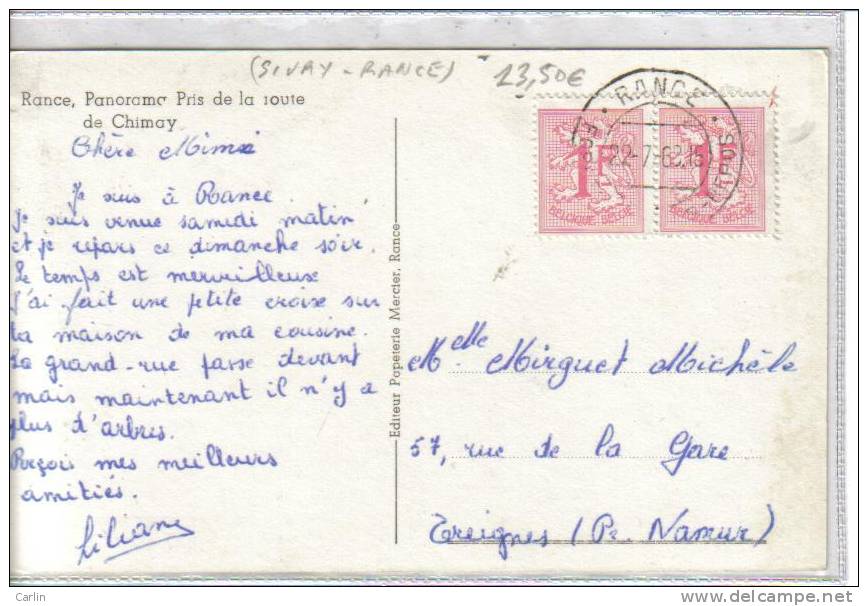 (SIVRY - RANCE) 13,50€
Rance, Panorama Pris de la route
de Chimay
Chère Mimi
Je suis à Rance.
Je suis venue samedi matin
et je repars ce dimanche soir.
Le temps est merveilleux
J'ai fait une petite croise sur
la maison de ma cousine.
La grand-rue passe devant
mais maintenant il n'y a
plus d'arbres.
Reçois mes meilleurs
amitiés.
Liliane
Editeur Papeterie Mercier, Rance
RANCE
22-7-63
1F
BELGIQUE BELGIË
1F
BELGIQUE BELGIË
Melle Mirguet Michèle
57, rue de la Gare
Treignes (Pr. Namur)
Carlin
www.delcampe.net